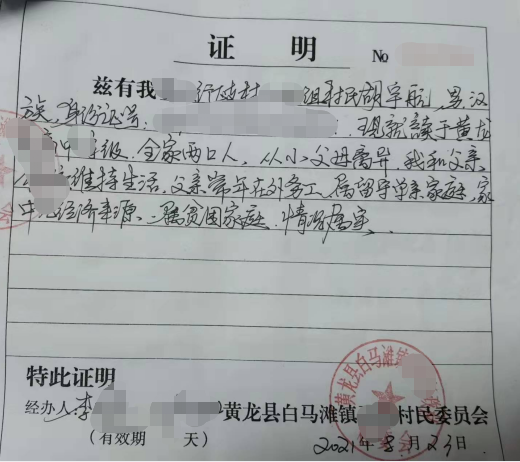 证 明 No
兹有我 行政村 组村民胡宇航,男,汉
族,身份证号: 现就读于黄龙
高中 年级.全家两口人,从小父母离异.我和父亲
维持生活.父亲常年在外务工,属留守单亲家庭,家
中 经济来源、属贫困家庭.情况属实.
特此证明
经办人:李 黄龙县白马滩镇 村民委员会
(有效期 天) 2021年8月23日
黄龙县白马滩镇